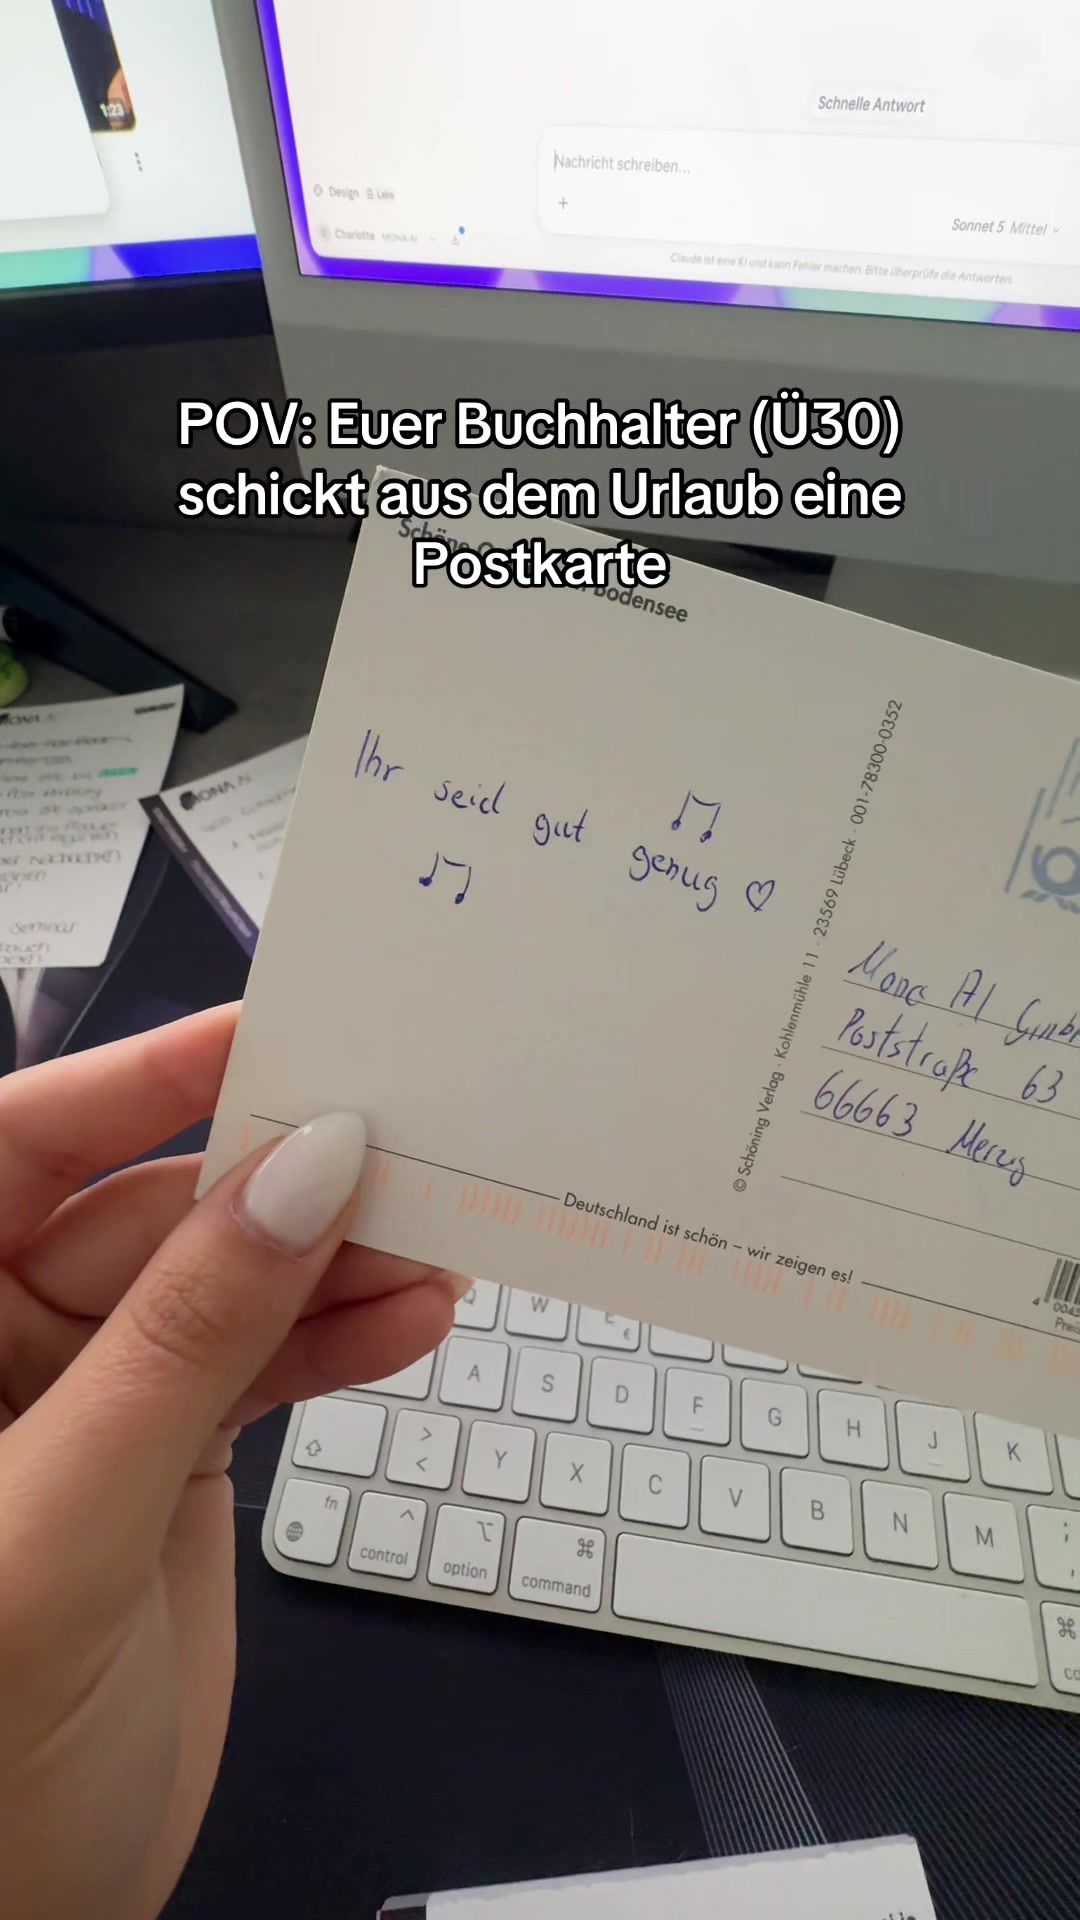 1:23
Schnelle Antwort
Nachricht schreiben...
+
Design Labs
Sonnet 5 Mittel
Charlotte MONA AI
Claude ist eine KI und kann Fehler machen. Bitte überprüfe die Antworten.
POV: Euer Buchhalter (Ü30)
schickt aus dem Urlaub eine
Postkarte
Bodensee
Ihr seid gut genug ♡
© Schöning Verlag · Kohlenmühle 11 · 23569 Lübeck · 001-78300-0352
Mona AI GmbH
Poststraße 63
66663 Merzig
Deutschland ist schön – wir zeigen es!
MONA AI
MONA AI
Seminar
Q W E €
A S D F G H J K
> <
Y X C V B N M ;
fn control option command